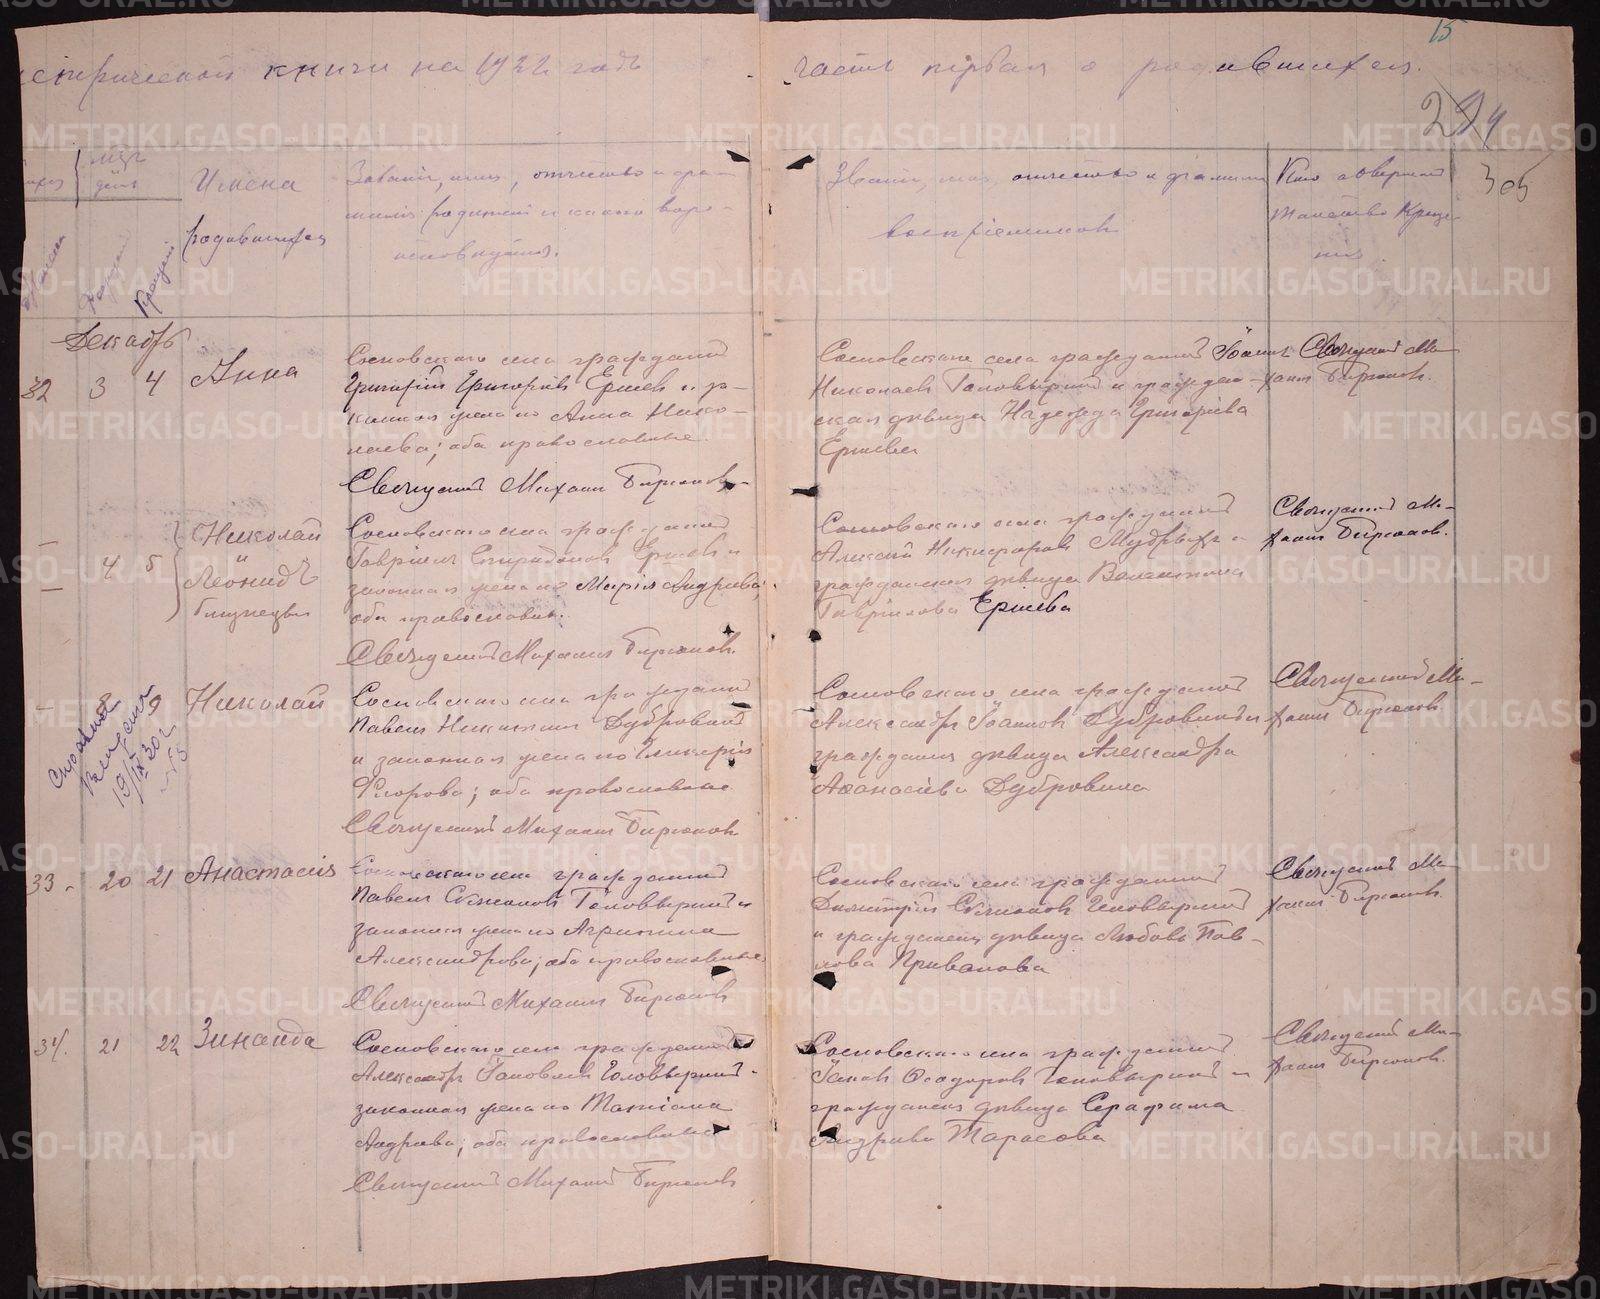 книги на 1922 годъ
часть первая о родившихся.
15
224
305
Имена
родившихся
Званіе, имя, отчество и фамилія
воспріемниковъ
Кто совершалъ
таинство Креще-
нія
Декабрь
32
3
4
Анна
Сосновскаго села гражданинъ
Григорій Григорьевъ Ершевъ и за-
конная жена его Анна Нико-
лаева; оба православные
Священникъ Михаилъ Бирюковъ
Сосновскаго села гражданинъ Іоаннъ
Николаевъ Головыринъ и граждан-
ская дѣвица Надежда Григорьева
Ершева
Священникъ Ми-
хаилъ Бирюковъ.
4
5
Николай
и
Леонидъ
близнецы
Сосновскаго села гражданинъ
Гавріилъ Спиридоновъ Ершевъ и
законная жена его Марія Андреева
оба православные.
Священникъ Михаилъ Бирюковъ.
Сосновскаго села гражданинъ
Алексій Никифоровъ Мудрыхъ и
гражданская дѣвица Валентина
Гавріилова Ершева
Священникъ Ми-
хаилъ Бирюковъ.
8
9
Николай
Сосновскаго села гражданинъ
Павелъ Никитинъ Дубровинъ
и законная жена его Гликерія
Флорова; оба православные
Священникъ Михаилъ Бирюковъ
Сосновскаго села гражданинъ
Александръ Іоанновъ Дубровинъ и
гражданская дѣвица Александра
Аѳанасіева Дубровина
Священникъ Ми-
хаилъ Бирюковъ.
33
20
21
Анастасія
Сосновскаго села гражданинъ
Павелъ Симеоновъ Головыринъ и
законная жена его Агрипина
Александрова; оба православные
Священникъ Михаилъ Бирюковъ
Сосновскаго села гражданинъ
Димитрій Симеоновъ Головыринъ
и гражданская дѣвица Любовь Пав-
лова Привалова
Священникъ Ми-
хаилъ Бирюковъ.
34.
21
22
Зинаида
Сосновскаго села гражданинъ
Александръ Іаковлевъ Головыринъ и
законная жена его Татіана
Андреева; оба православные
Священникъ Михаилъ Бирюковъ
Сосновскаго села гражданинъ
Ѳеодоровъ Головыринъ и
гражданская дѣвица Серафима
Андреева Тарасова
Священникъ Ми-
хаилъ Бирюковъ.
METRIKI.GASO-URAL.RU